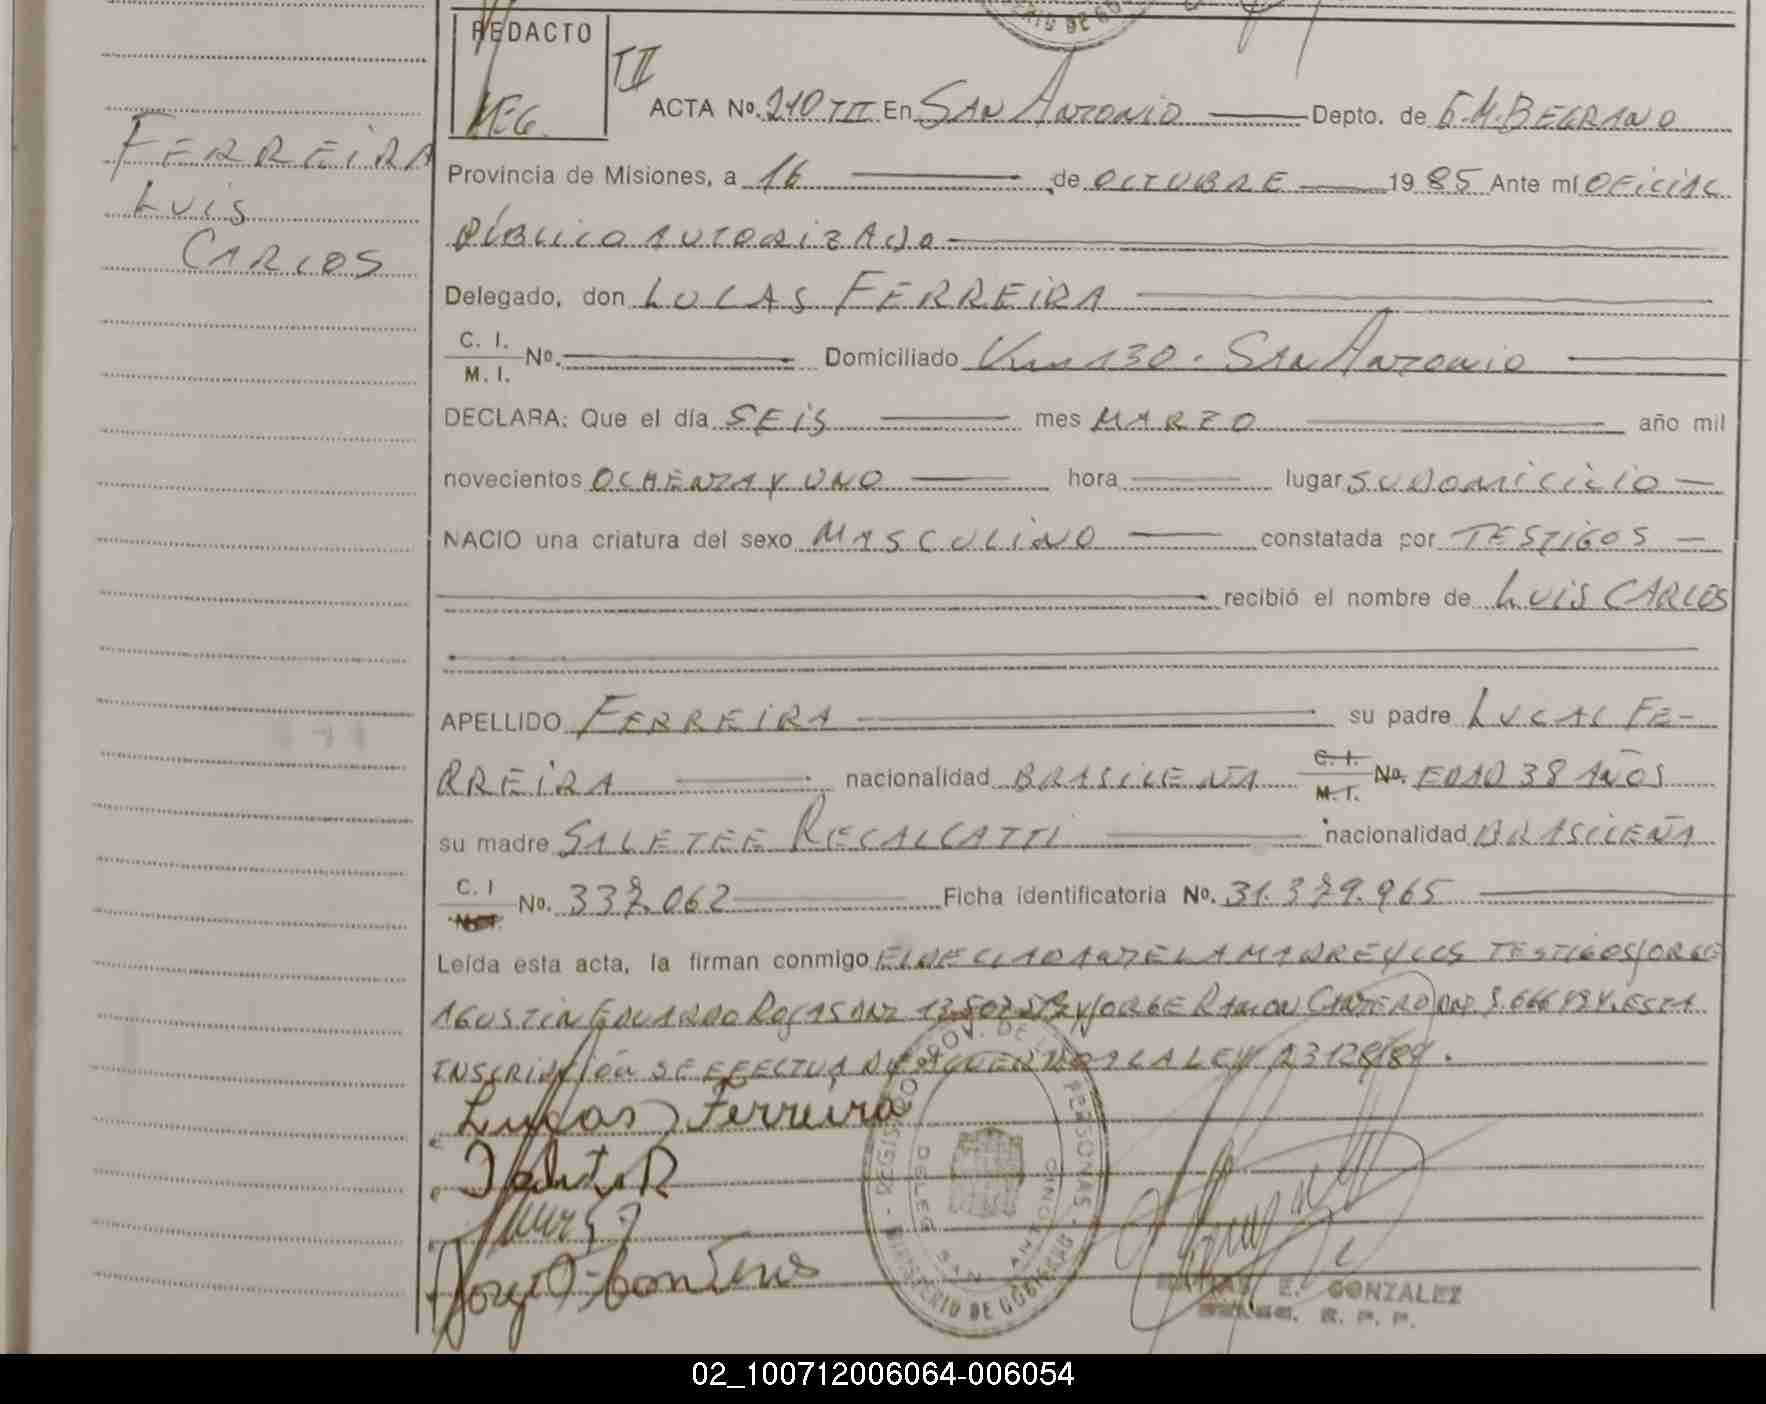 REDACTO
TII
ACTA Nº. 210 TII En SAN ANTONIO Depto. de G.M. BELGRANO
FERREIRA
LUIS
CARLOS
Provincia de Misiones, a 16 de OCTUBRE 1985 Ante mí OFICIAL
PÚBLICO AUTORIZADO
Delegado, don LUCAS FERREIRA
C. I.
M. I. Nº. Domiciliado Km 130 - SAN ANTONIO
DECLARA: Que el día SEIS mes MARZO año mil
novecientos OCHENTA Y UNO hora lugar SU DOMICILIO
NACIO una criatura del sexo MASCULINO constatada por TESTIGOS
recibió el nombre de LUIS CARLOS
APELLIDO FERREIRA su padre LUCAS FE-
RREIRA nacionalidad BRASILEÑA C. I. M. I. No. EDAD 38 AÑOS
su madre SALETEE RECALCATTI nacionalidad BRASILEÑA
C. I No. 337.062 Ficha identificatoria No. 31.379.965
Leída esta acta, la firman conmigo EL DECLARANTE LA MADRE Y LOS TESTIGOS JORGE
AGUSTIN EDUARDO ROJAS DNI Y JORGE RAMON CANTERO DNI ESTA
INSCRIPCIÓN SE EFECTUA DE ACUERDO A LA LEY 23128/84.
Lucas Ferreira
REGISTRO PROV. DE LAS PERSONAS
MINISTERIO DE GOBIERNO
E. GONZALEZ
R. P. P.
02_100712006064-006054